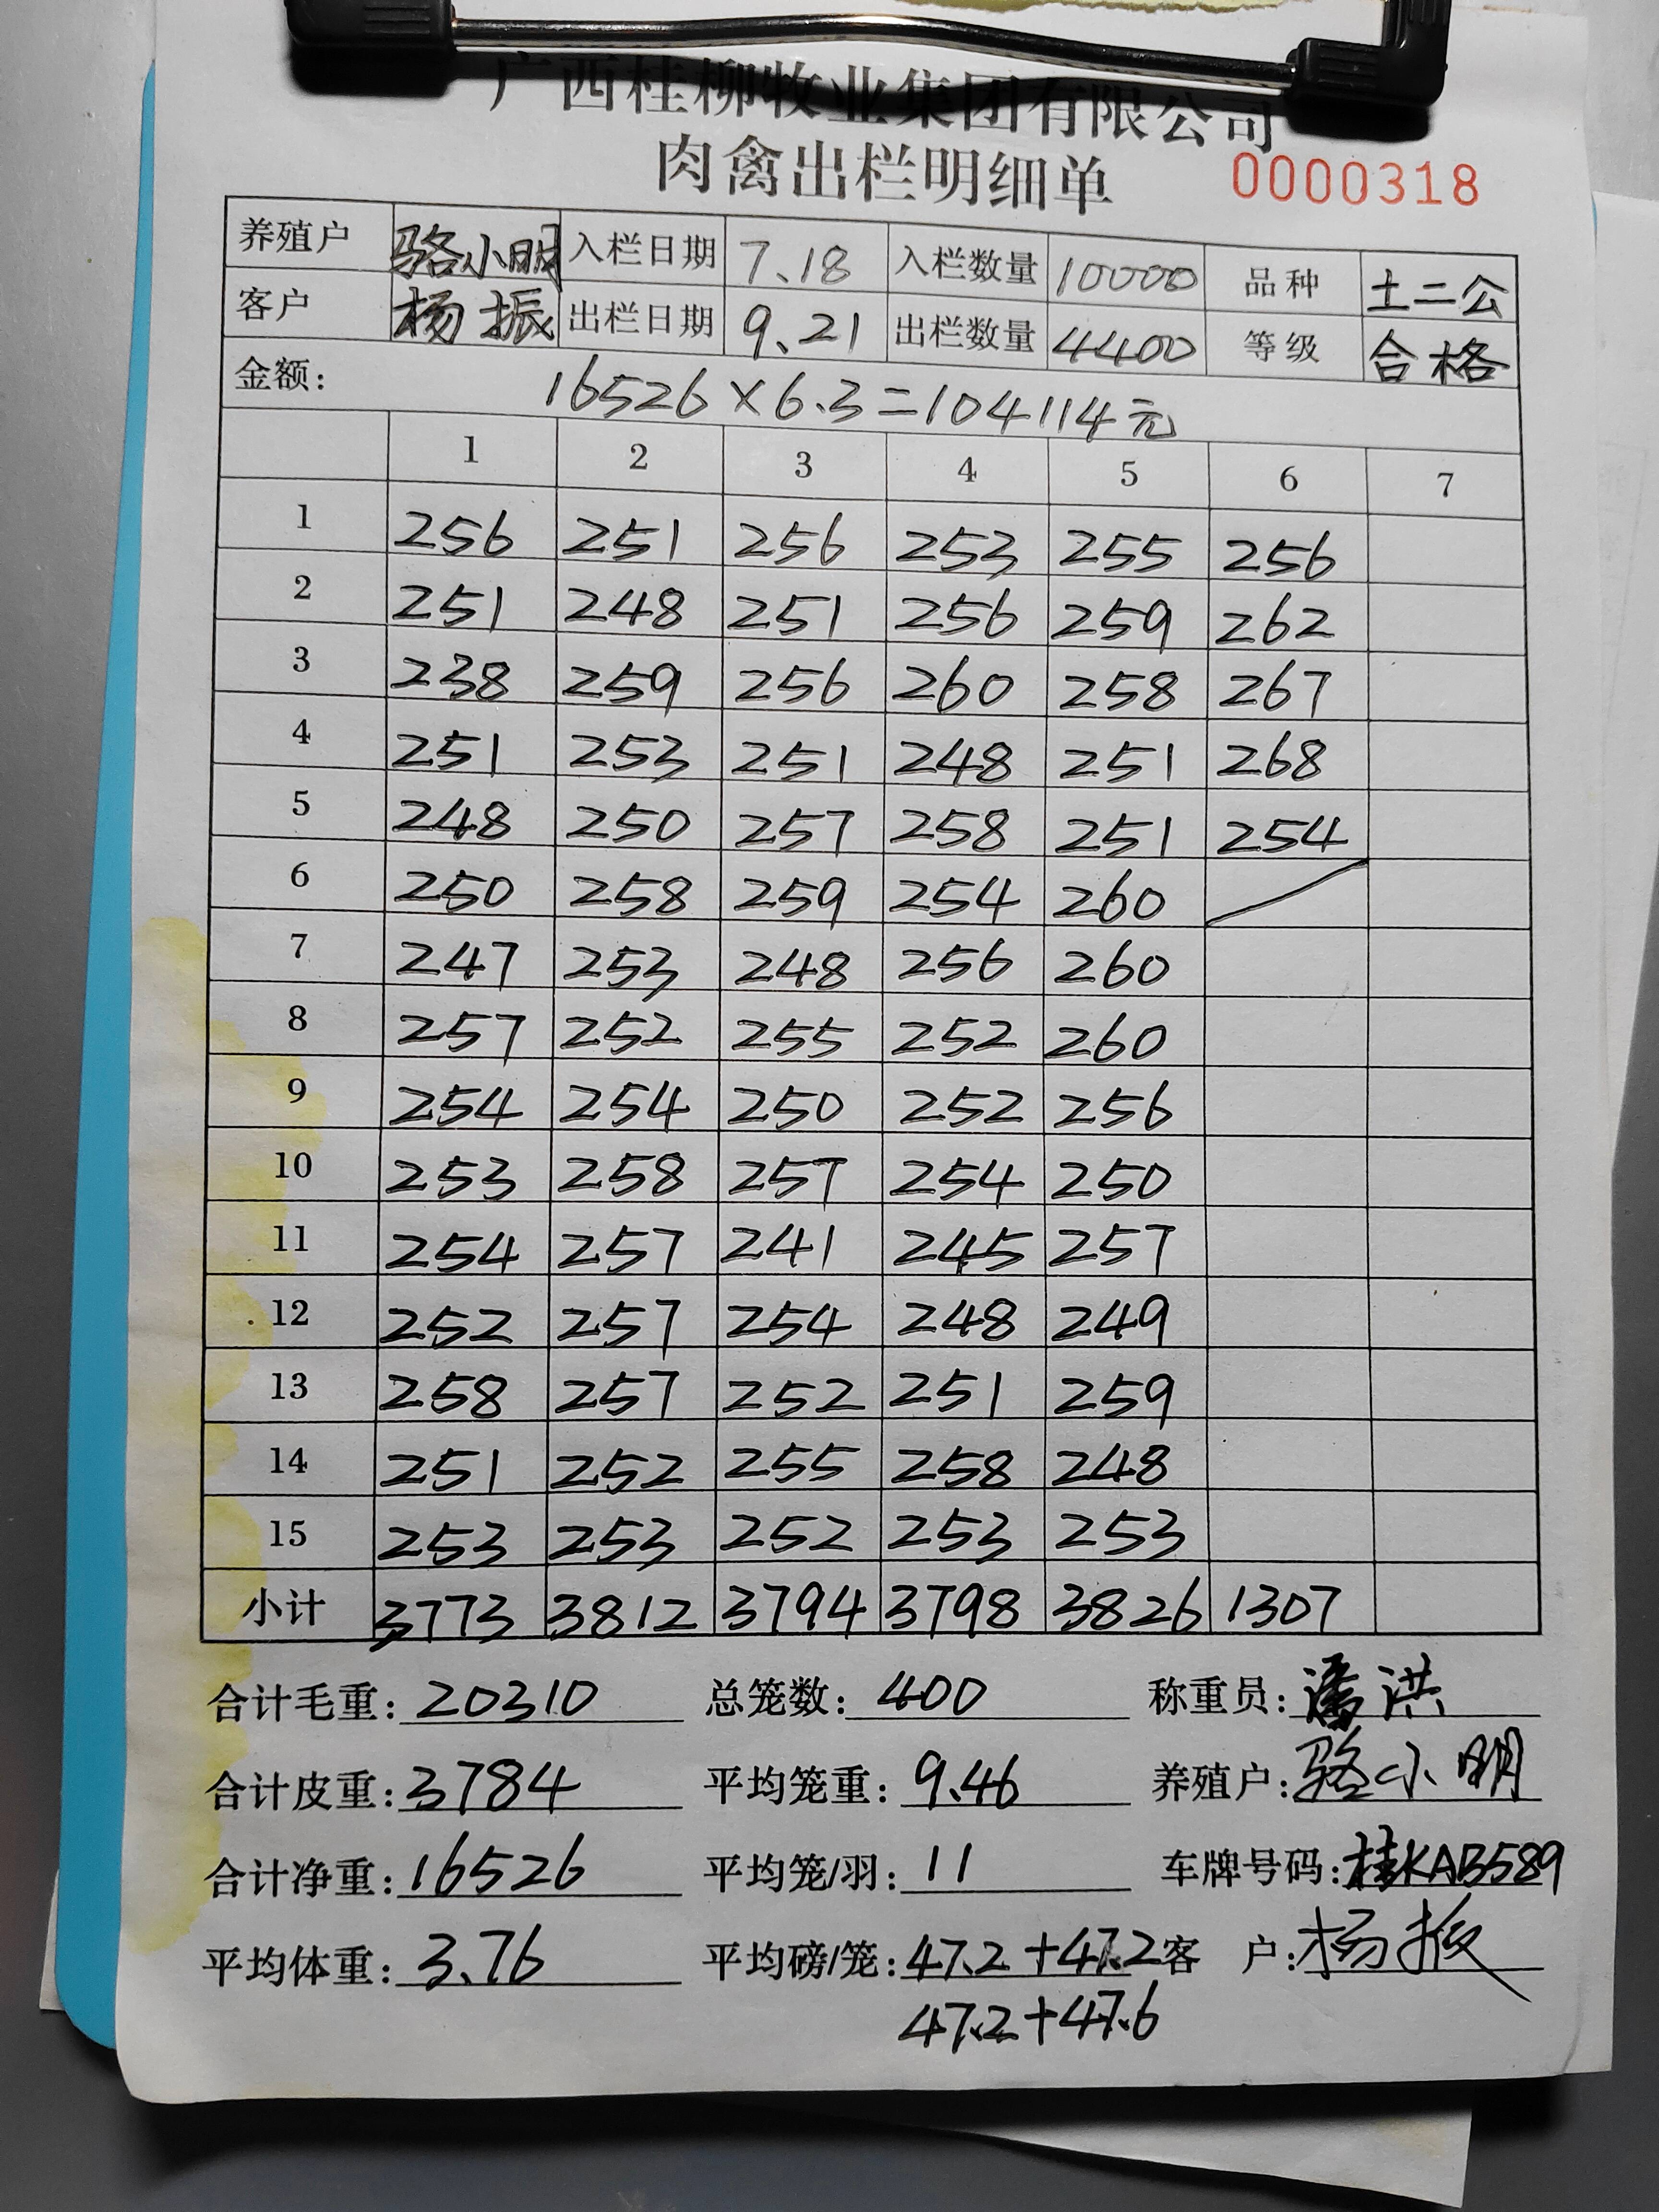 广西桂柳牧业集团有限公司
肉禽出栏明细单 0000318
养殖户 骆小明 入栏日期 7.18 入栏数量 10000 品种 土二公
客户 杨振 出栏日期 9.21 出栏数量 4400 等级 合格
金额: 16526×6.3=104114元
1 2 3 4 5 6 7
1 256 251 256 253 255 256
2 251 248 251 256 259 262
3 238 259 256 260 258 267
4 251 253 251 248 251 268
5 248 250 257 258 251 254
6 250 258 259 254 260
7 247 253 248 256 260
8 257 252 255 252 260
9 254 254 250 252 256
10 253 258 257 254 250
11 254 257 241 245 257
12 252 257 254 248 249
13 258 257 252 251 259
14 251 252 255 258 248
15 253 253 252 253 253
小计 3773 3812 3794 3798 3826 1307
合计毛重: 20310 总笼数: 400 称重员: 潘洪
合计皮重: 3784 平均笼重: 9.46 养殖户: 骆小明
合计净重: 16526 平均笼/羽: 11 车牌号码: 桂KAB589
平均体重: 3.76 平均磅/笼: 47.2+47.2 客户: 杨振
47.2+47.6